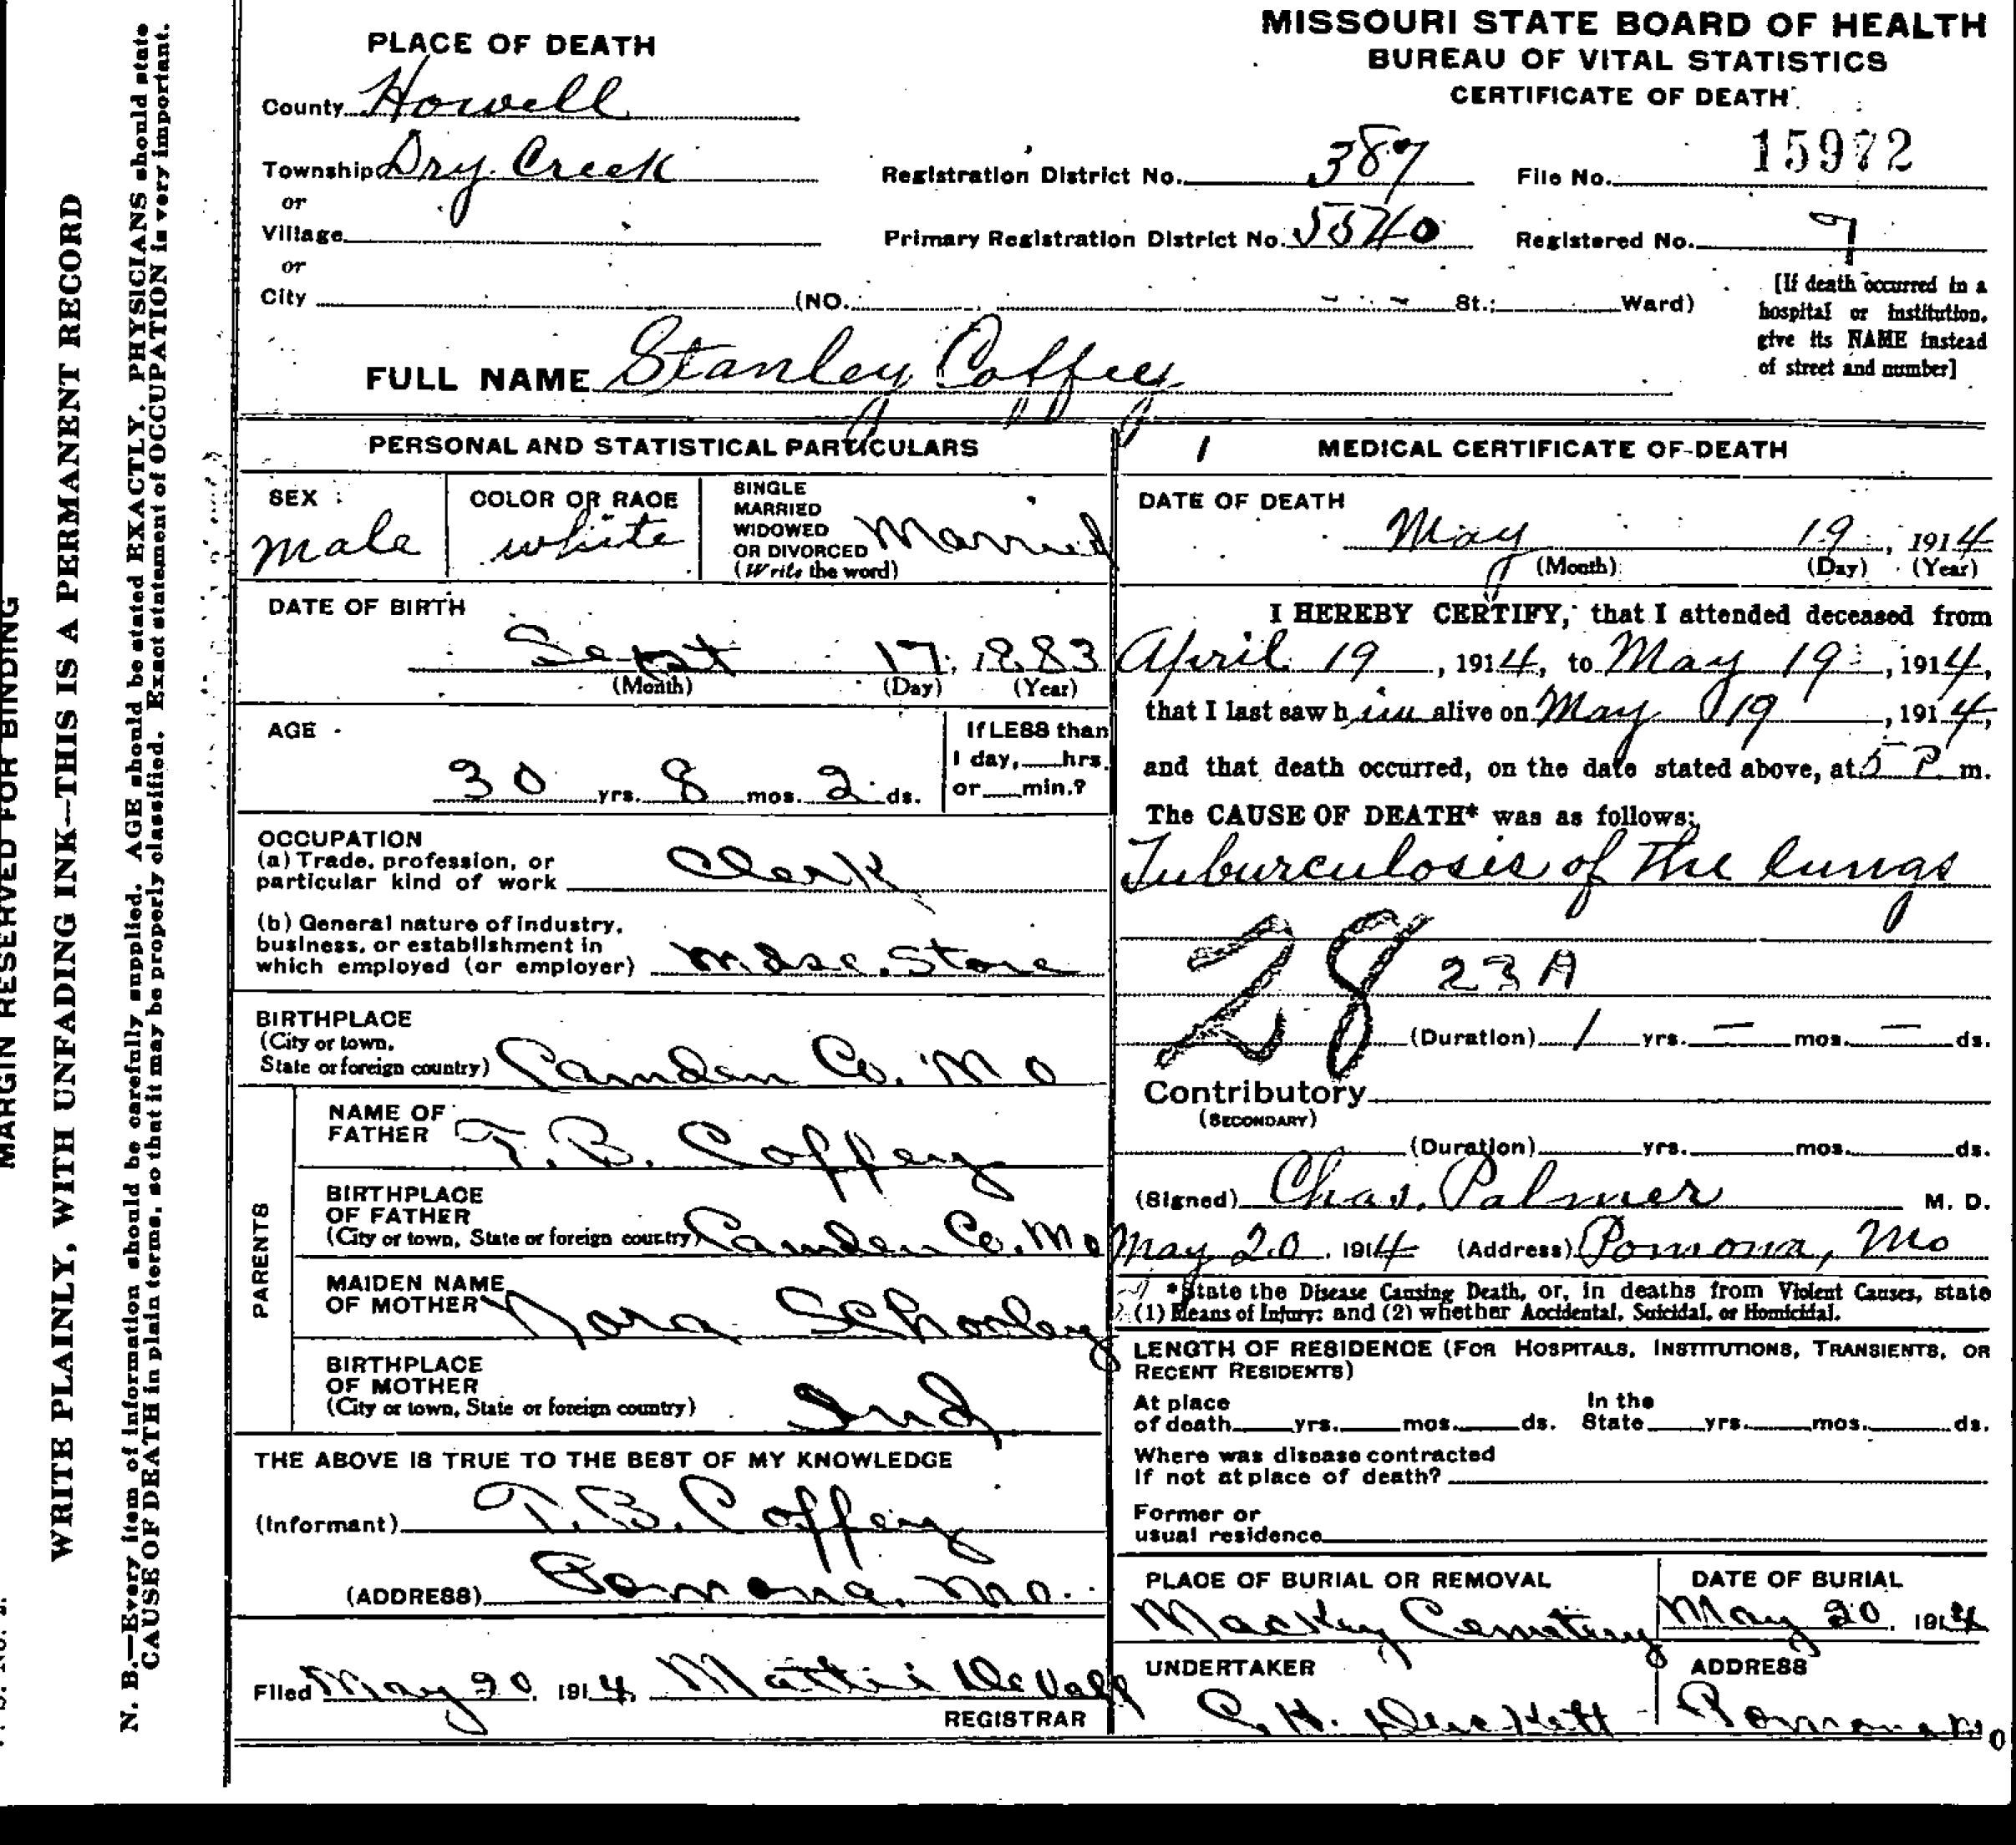 MISSOURI STATE BOARD OF HEALTH
BUREAU OF VITAL STATISTICS
CERTIFICATE OF DEATH
PLACE OF DEATH
County Howell
Township Dry Creek
or
Village
or
City (NO. St.; Ward)
Registration District No. 387 File No. 15972
Primary Registration District No. 5540 Registered No. 7
[If death occurred in a
hospital or institution,
give its NAME instead
of street and number]
FULL NAME Stanley Coffey
PERSONAL AND STATISTICAL PARTICULARS
SEX
male
COLOR OR RACE
white
SINGLE
MARRIED
WIDOWED
OR DIVORCED
(Write the word)
Married
DATE OF BIRTH
Sept 17, 1883
(Month) (Day) (Year)
AGE
30 yrs. 8 mos. 2 ds.
If LESS than
1 day, hrs.
or min.?
OCCUPATION
(a) Trade, profession, or
particular kind of work Clerk
(b) General nature of industry,
business, or establishment in
which employed (or employer) Mdse. Store
BIRTHPLACE
(City or town,
State or foreign country) Camden Co. Mo
PARENTS
NAME OF
FATHER T. B. Coffey
BIRTHPLACE
OF FATHER
(City or town, State or foreign country) Camden Co. Mo
MAIDEN NAME
OF MOTHER Nora Schooley
BIRTHPLACE
OF MOTHER
(City or town, State or foreign country) Ind
THE ABOVE IS TRUE TO THE BEST OF MY KNOWLEDGE
(Informant) T. B. Coffey
(ADDRESS) Pomona, Mo.
Filed May 20, 1914, Mattie DeVall
REGISTRAR
MEDICAL CERTIFICATE OF DEATH
DATE OF DEATH
May 19, 1914
(Month) (Day) (Year)
I HEREBY CERTIFY, that I attended deceased from
April 19, 1914, to May 19, 1914,
that I last saw him alive on May 19, 1914,
and that death occurred, on the date stated above, at 5 P m.
The CAUSE OF DEATH* was as follows:
Tuburculosis of the lungs
28 23A
(Duration) 1 yrs. — mos. — ds.
Contributory
(SECONDARY)
(Duration) yrs. mos. ds.
(Signed) Chas. Palmer M. D.
May 20, 1914 (Address) Pomona, Mo
*State the Disease Causing Death, or, in deaths from Violent Causes, state
(1) Means of Injury; and (2) whether Accidental, Suicidal, or Homicidal.
LENGTH OF RESIDENCE (FOR HOSPITALS, INSTITUTIONS, TRANSIENTS, OR
RECENT RESIDENTS)
At place In the
of death yrs. mos. ds. State yrs. mos. ds.
Where was disease contracted
If not at place of death?
Former or
usual residence
PLACE OF BURIAL OR REMOVAL
Mackey Cemetery
DATE OF BURIAL
May 20, 1914
UNDERTAKER
H. Duckett
ADDRESS
Pomona Mo
MARGIN RESERVED FOR BINDING
WRITE PLAINLY, WITH UNFADING INK—THIS IS A PERMANENT RECORD
N. B.—Every item of information should be carefully supplied. AGE should be stated EXACTLY. PHYSICIANS should state
CAUSE OF DEATH in plain terms, so that it may be properly classified. Exact statement of OCCUPATION is very important.